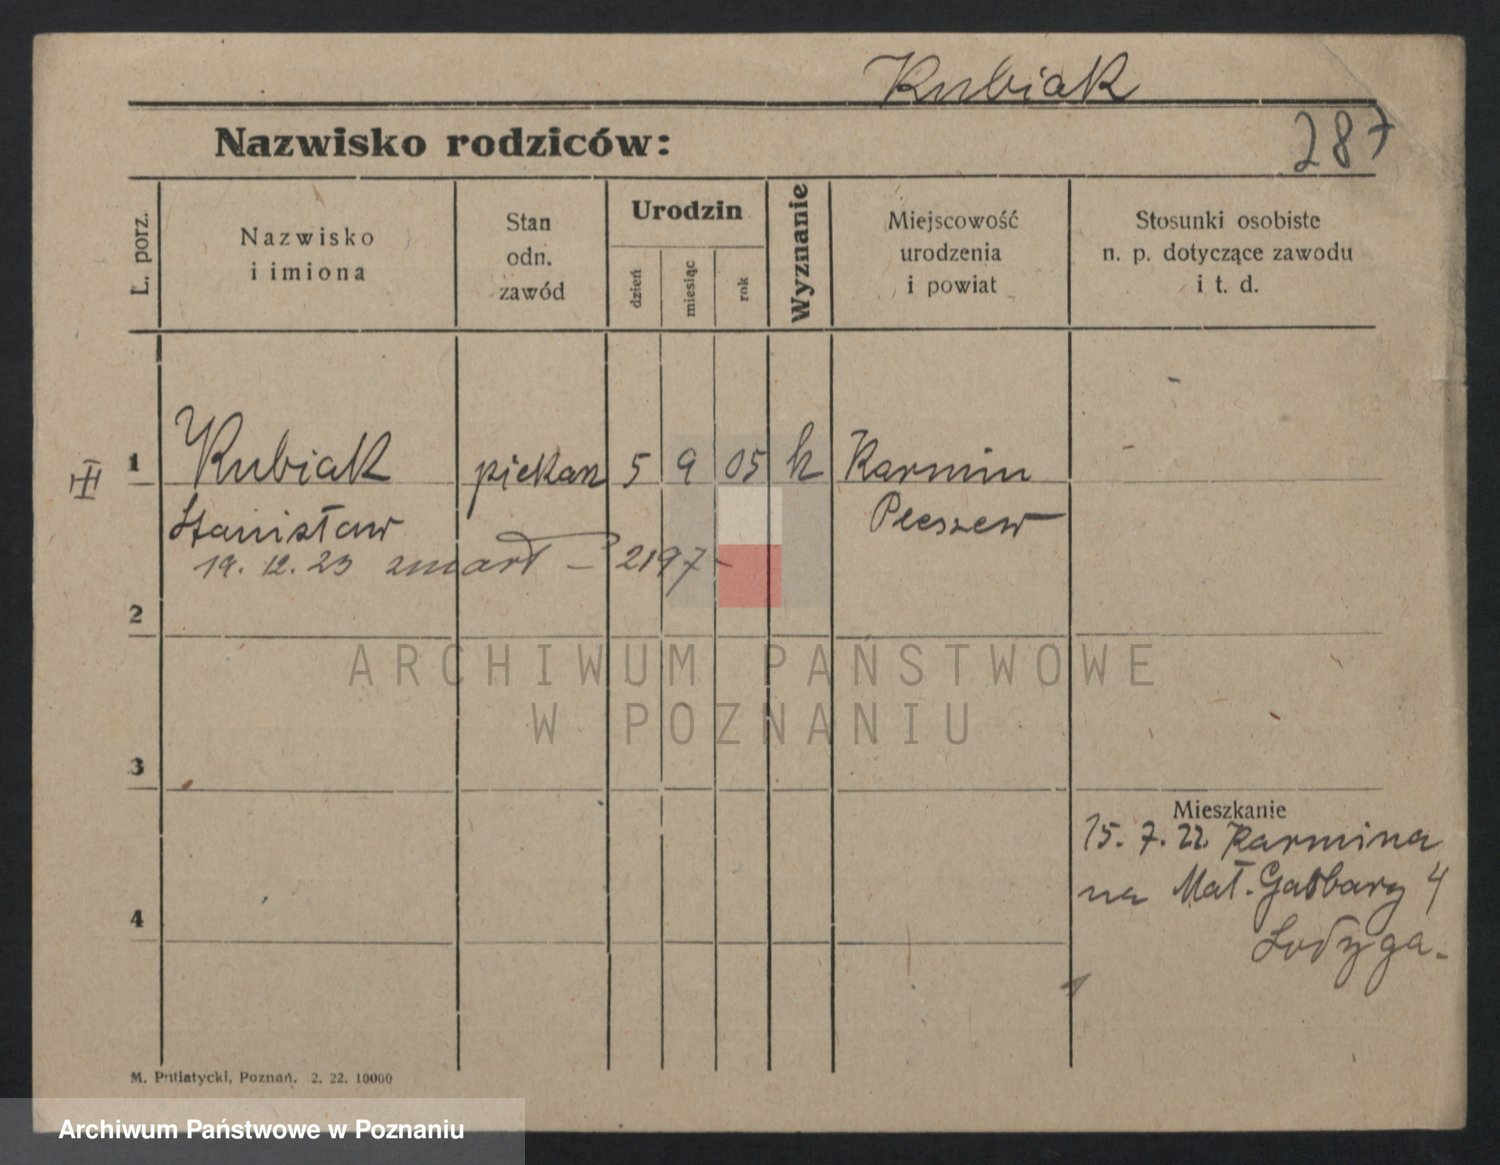 Kubiak
287
Nazwisko rodziców:
L. porz.
Nazwisko
i imiona
Stan
odn.
zawód
Urodzin
dzień
miesiąc
rok
Wyznanie
Miejscowość
urodzenia
i powiat
Stosunki osobiste
n. p. dotyczące zawodu
i t. d.
1
Kubiak
piekarz
5
9
05
k
Karmin
Stanisław
Pleszew
19. 12. 23 zmarł - 2197-
2
3
4
Mieszkanie
15. 7. 22. Karmina
na Mał. Garbary 4
Łodyga-
M. Putiatycki, Poznań. 2. 22. 10000
ARCHIWUM PAŃSTWOWE
W POZNANIU
Archiwum Państwowe w Poznaniu